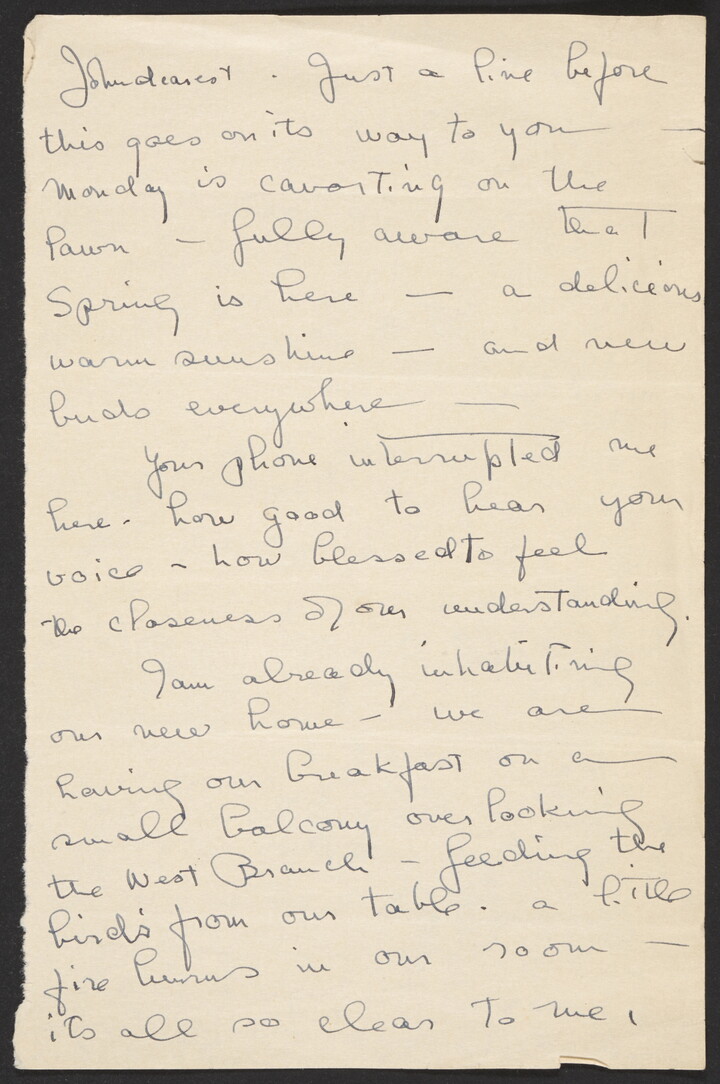 John dearest. Just a line before
this goes on its way to you —
Monday is cavorting on the
lawn — fully aware that
Spring is here — a delicious
warm sunshine — and new
buds everywhere —
Your phone interrupted me
here. how good to hear your
voice — how blessed to feel
the closeness of our understanding.
I am already inhabiting
our new home — we are
having our breakfast on a
small balcony overlooking
the West Branch — feeding the
birds from our table. a little
fire burns in our room —
its all so clear to me.